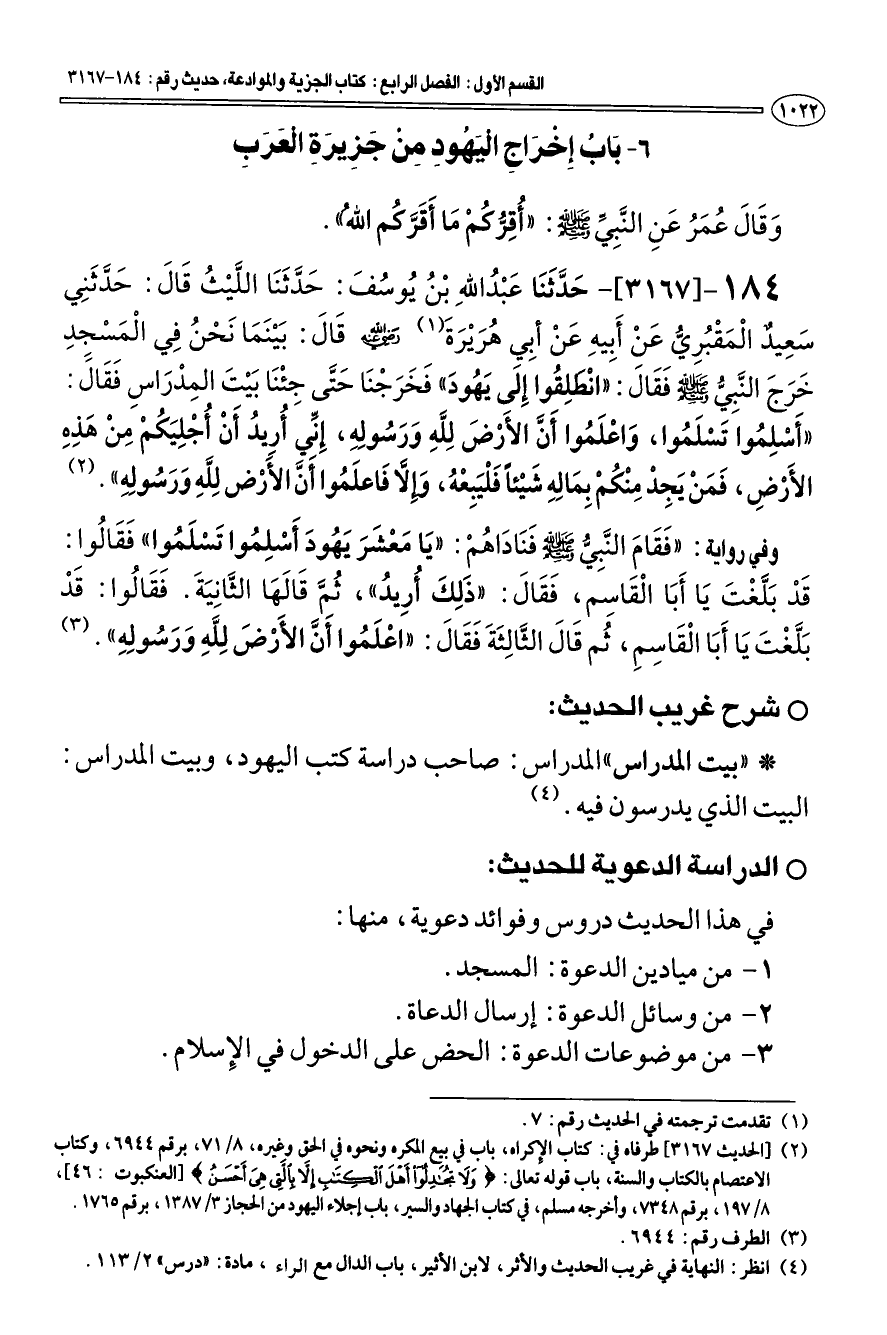 القسم الأول: الفصل الرابع: كتاب الجزية والموادعة، حديث رقم: ١٨٤-٣١٦٧
١٠٢٢
٦- بَابُ إِخْرَاجِ الْيَهُودِ مِنْ جَزِيرَةِ الْعَرَبِ
وَقَالَ عُمَرُ عَنِ النَّبِيِّ ﷺ: «أُقِرُّكُمْ مَا أَقَرَّكُم اللهُ».
١٨٤-[٣١٦٧]- حَدَّثَنَا عَبْدُاللهِ بْنُ يُوسُفَ: حَدَّثَنَا اللَّيْثُ قَالَ: حَدَّثَنِي
سَعِيدٌ الْمَقْبُرِيُّ عَنْ أَبِيهِ عَنْ أبي هُرَيْرَةَ(١) رضي الله عنه قَالَ: بَيْنَمَا نَحْنُ فِي الْمَسْجِدِ
خَرَجَ النَّبِيُّ ﷺ فَقَالَ: «انْطَلِقُوا إِلَى يَهُودَ» فَخَرَجْنَا حَتَّى جِئْنَا بَيْتَ المِدْرَاسِ فَقَالَ:
«أَسْلِمُوا تَسْلَمُوا، وَاعْلَمُوا أَنَّ الأَرْضَ لِلَّهِ وَرَسُولِهِ، إِنِّي أُرِيدُ أَنْ أُجْلِيَكُمْ مِنْ هَذِهِ
الأَرْضِ، فَمَنْ يَجِدْ مِنْكُمْ بِمَالِهِ شَيْئاً فَلْيَبِعْهُ، وَإِلَّا فَاعلَمُوا أَنَّ الأَرْضَ لِلَّهِ وَرَسُولِهِ».(٢)
وفي رواية: «فَقَامَ النَّبِيُّ ﷺ فَنَادَاهُمْ: «يَا مَعْشَرَ يَهُودَ أَسْلِمُوا تَسْلَمُوا» فَقَالُوا:
قَدْ بَلَّغْتَ يَا أَبَا الْقَاسِمِ، فَقَالَ: «ذَلِكَ أُرِيدُ»، ثُمَّ قَالَهَا الثَّانِيَةَ. فَقَالُوا: قَدْ
بَلَّغْتَ يَا أَبَا الْقَاسِمِ، ثُم قَالَ الثَّالِثَةَ فَقَالَ: «اعْلَمُوا أَنَّ الأَرْضَ لِلَّهِ وَرَسُولِهِ».(٣)
○ شرح غريب الحديث:
* «بيت المدراس» المدراس: صاحب دراسة كتب اليهود، وبيت المدراس:
البيت الذي يدرسون فيه.(٤)
○ الدراسة الدعوية للحديث:
في هذا الحديث دروس وفوائد دعوية، منها:
١- من ميادين الدعوة: المسجد.
٢- من وسائل الدعوة: إرسال الدعاة.
٣- من موضوعات الدعوة: الحض على الدخول في الإسلام.
(١) تقدمت ترجمته في الحديث رقم: ٧.
(٢) [الحديث ٣١٦٧] طرفاه في: كتاب الإكراه، باب في بيع المكره ونحوه في الحق وغيره، ٨/ ٧١، برقم ٦٩٤٤، وكتاب
الاعتصام بالكتاب والسنة، باب قوله تعالى: ﴿وَلَا تُجَٰدِلُوٓا۟ أَهْلَ ٱلْكِتَٰبِ إِلَّا بِٱلَّتِى هِىَ أَحْسَنُ﴾ [العنكبوت: ٤٦]،
٨/ ١٩٧، برقم ٧٣٤٨، وأخرجه مسلم، في كتاب الجهاد والسير، باب إجلاء اليهود من الحجاز ٣/ ١٣٨٧، برقم ١٧٦٥.
(٣) الطرف رقم: ٦٩٤٤.
(٤) انظر: النهاية في غريب الحديث والأثر، لابن الأثير، باب الدال مع الراء، مادة: «درس» ٢/ ١١٣.